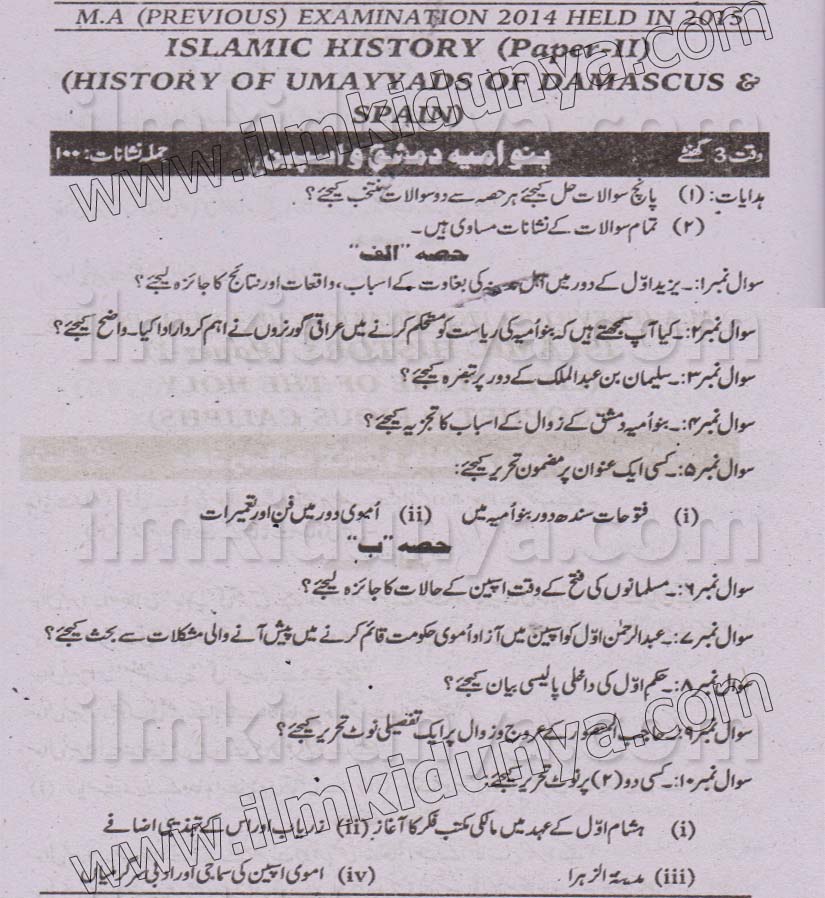 M.A (PREVIOUS) EXAMINATION 2014 HELD IN 2015
ISLAMIC HISTORY (Paper-II)
(HISTORY OF UMAYYADS OF DAMASCUS &
SPAIN)
وقت 3 گھنٹے بنو امیہ دمشق و اسپین جملہ نشانات: ۱۰۰
ہدایات: (۱) پانچ سوالات حل کیجئے ہر حصہ سے دو سوالات منتخب کیجئے؟
(۲) تمام سوالات کے نشانات مساوی ہیں۔
حصہ "الف"
سوال نمبر۱:۔ یزید اوّل کے دور میں اہل مدینہ کی بغاوت کے اسباب، واقعات اور نتائج کا جائزہ لیجئے؟
سوال نمبر۲:۔ کیا آپ سمجھتے ہیں کہ بنو اُمیہ کی ریاست کو مستحکم کرنے میں عراقی گورنروں نے اہم کردار ادا کیا۔ واضح کیجئے؟
سوال نمبر۳:۔ سلیمان بن عبدالملک کے دور پر تبصرہ کیجئے؟
سوال نمبر۴:۔ بنو اُمیہ دمشق کے زوال کے اسباب کا تجزیہ کیجئے؟
سوال نمبر۵:۔ کسی ایک عنوان پر مضمون تحریر کیجئے:
(i) فتوحات سندھ دور بنو اُمیہ میں (ii) اُموی دور میں فن اور تعمیرات
حصہ "ب"
سوال نمبر۶:۔ مسلمانوں کی فتح کے وقت اسپین کے حالات کا جائزہ لیجئے؟
سوال نمبر۷:۔ عبدالرحمٰن اوّل کو اسپین میں آزاد اُموی حکومت قائم کرنے میں پیش آنے والی مشکلات سے بحث کیجئے؟
سوال نمبر۸:۔ حکم اوّل کی داخلی پالیسی بیان کیجئے؟
سوال نمبر۹:۔ حاجب المنصور کے عروج و زوال پر ایک تفصیلی نوٹ تحریر کیجئے؟
سوال نمبر۱۰:۔ کسی دو (۲) پر نوٹ تحریر کیجئے:
(i) ہشام اوّل کے عہد میں مالکی مکتب فکر کا آغاز (ii) زریاب اور اس کے تہذیبی اضافے
(iii) مدینۃ الزہرا (iv) اموی اسپین کی سماجی اور ادبی سرگرمیاں
www.ilmkidunya.com
www.ilmkidunya.com
ilmkidunya.com
ilmkidunya.com
ilmkidunya.com
ilmkidunya.com